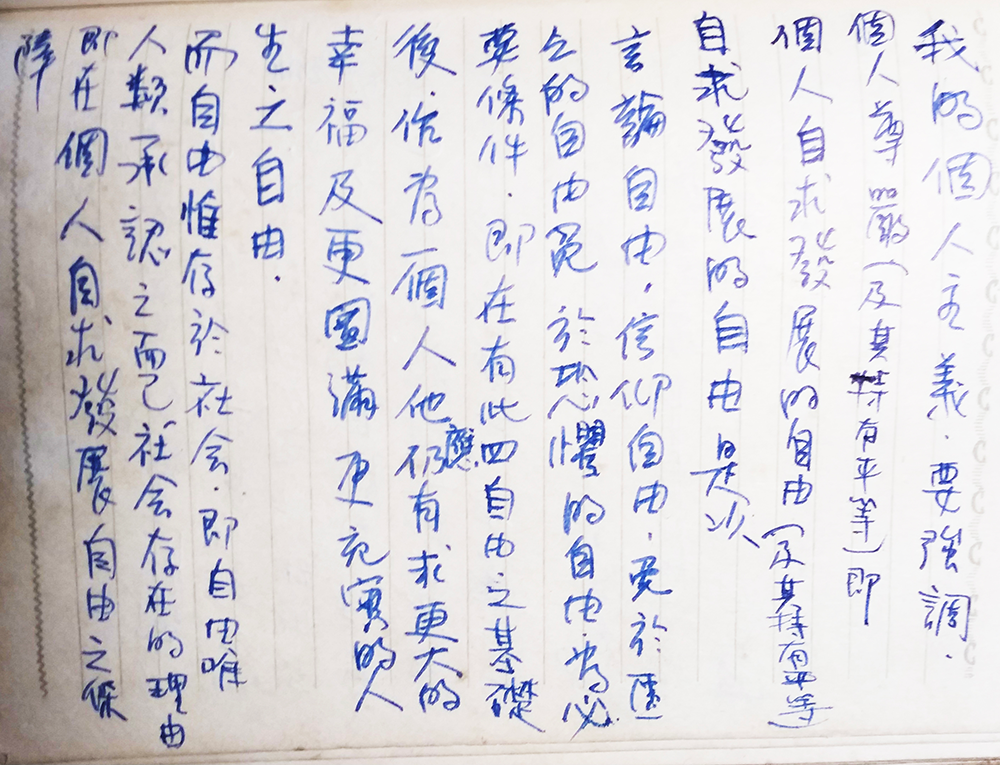 我的個人主義．要強調．
個人尊嚴（及其持有平等）即
個人自求發展的自由（及其持有平等）
自求發展的自由是以
言論自由，信仰自由，免於匱
乏的自由免於恐懼的自由為必
要條件．即在有此四自由之基礎
後，作為一個人他仍應有求更大的
幸福及更圓滿更充實的人
生之自由．
而自由惟存於社会．即自由唯
人類承認之而已社会存在的理由
即在個人自求發展自由之保
障